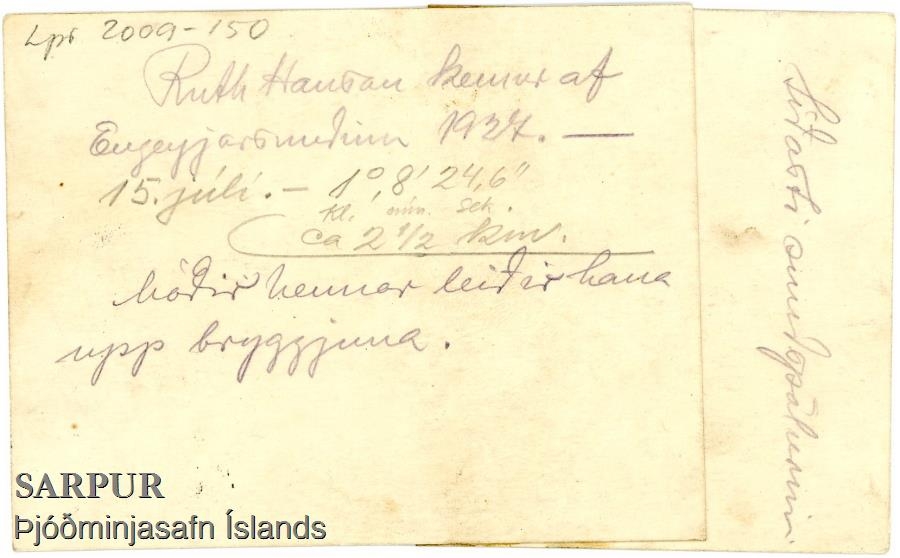 Lpr 2009-150
Ruth Hanson kemur af
Engeyjarsundinu 1927. —
15. júlí. – 1°, 8' 24,6"
kl. mín. sek.
ca 2 1/2 km.
Móðir hennar leiðir hana
upp bryggjuna.
Síðasti
SARPUR
Þjóðminjasafn Íslands